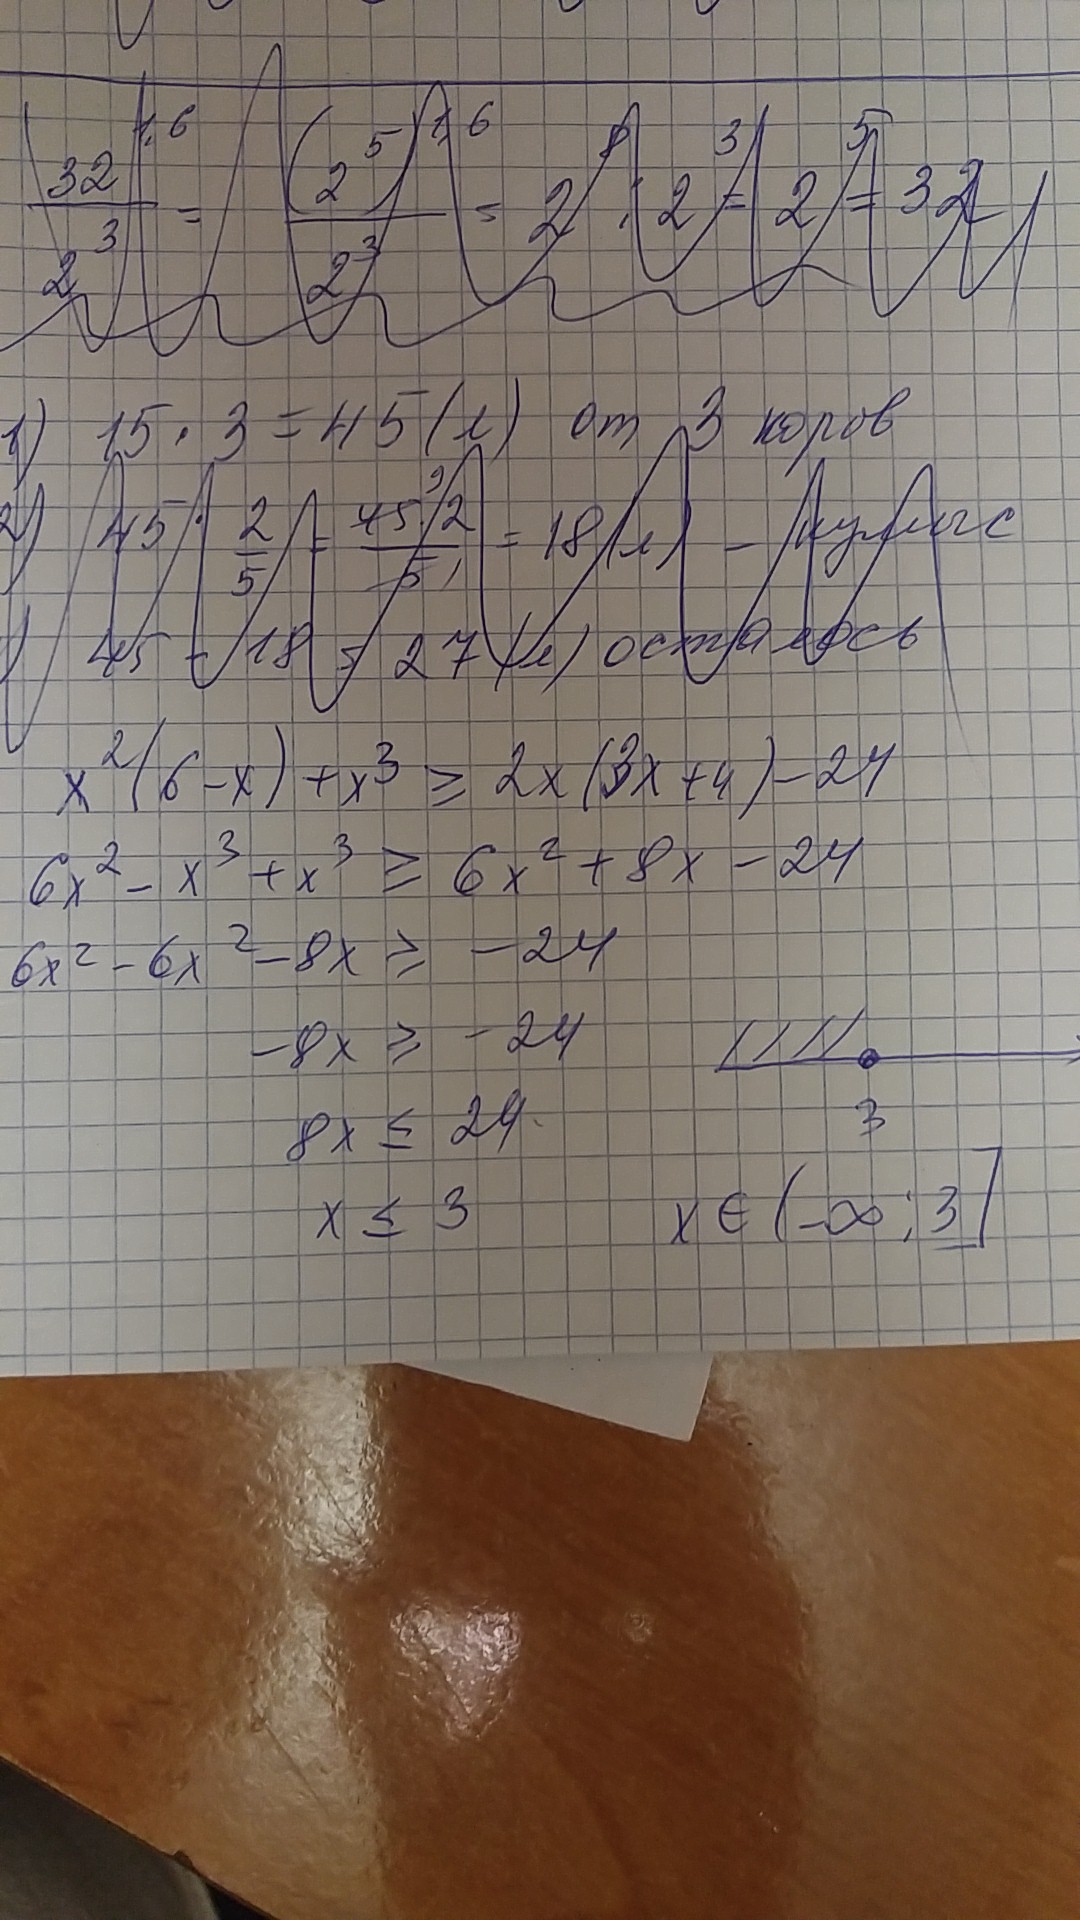 32^1,6 / 2^3 = (2^5)^1,6 / 2^3 = 2^8 : 2^3 = 2^5 = 32
1) 15 · 3 = 45 (л) от 3 коров
2) 45 · 2/5 = 45 · 2 / 5 = 18 (л) – кумыс
) 45 - 18 = 27 (л) осталось
x^2(6-x) + x^3 ≥ 2x(3x+4) - 24
6x^2 - x^3 + x^3 ≥ 6x^2 + 8x - 24
6x^2 - 6x^2 - 8x ≥ -24
-8x ≥ -24
8x ≤ 24
3
x ≤ 3 x ∈ (-∞; 3]